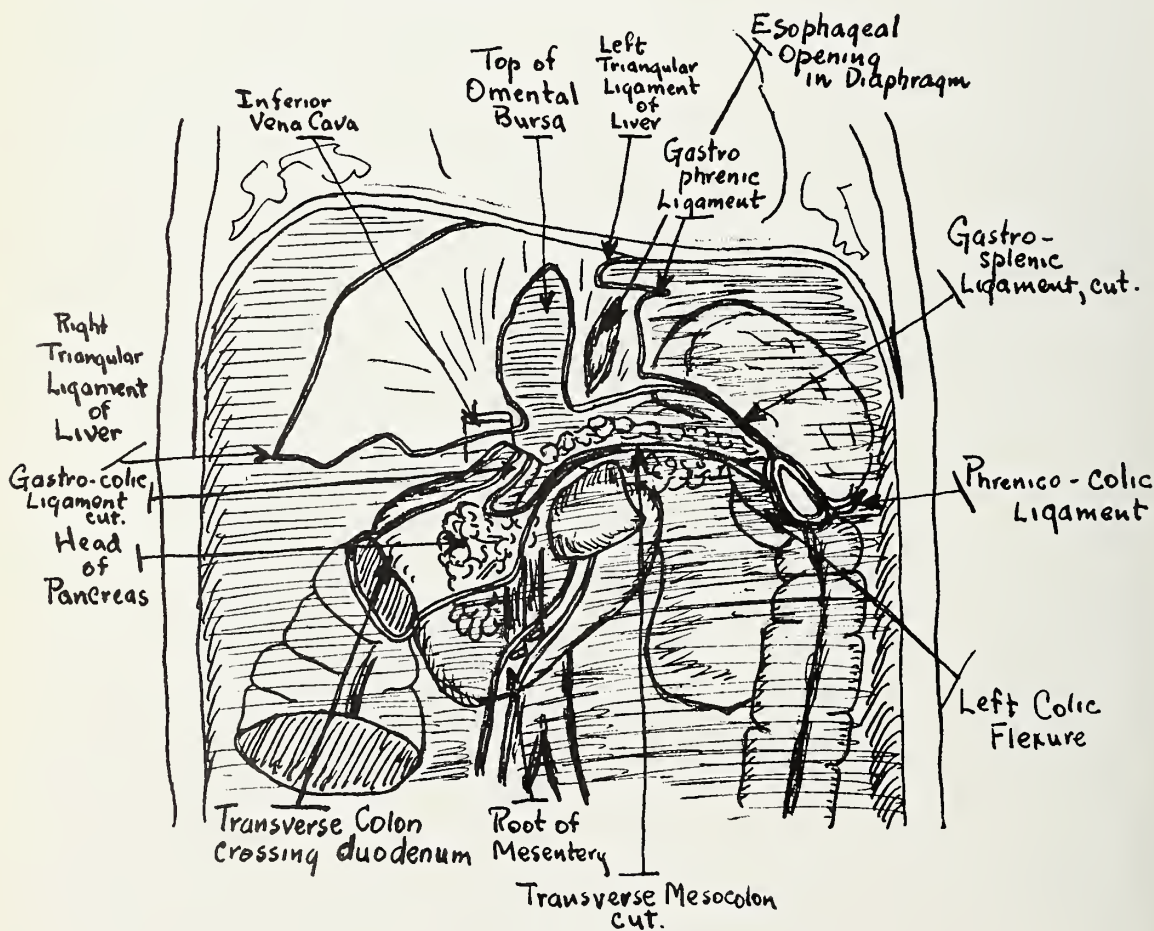 Esophageal
Opening
in Diaphragm
Left
Triangular
Ligament
of
Liver
Top of
Omental
Bursa
Inferior
Vena Cava
Gastro
phrenic
Ligament
Gastro-
splenic
Ligament, cut.
Right
Triangular
Ligament
of
Liver
Gastro-colic
Ligament
cut.
Head
of
Pancreas
Phrenico-Colic
Ligament
Left Colic
Flexure
Transverse Colon
crossing duodenum
Root of
Mesentery
Transverse Mesocolon
cut.